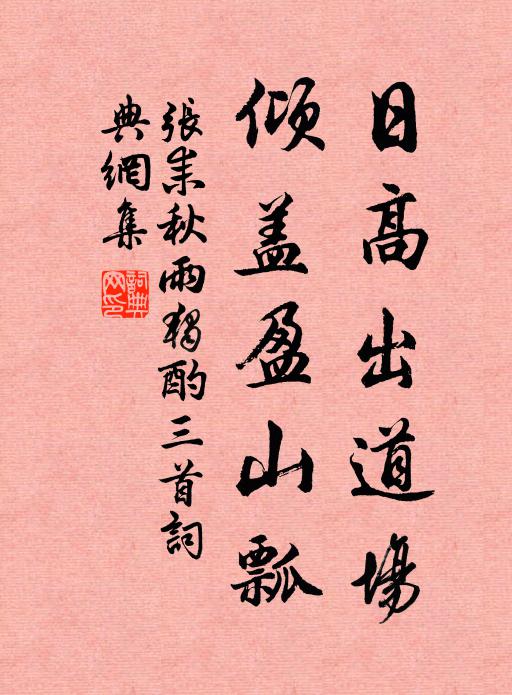 日高出道場
傾盖盈山瓢
張耒秋雨獨酌三首詞
典網集
詞典網印